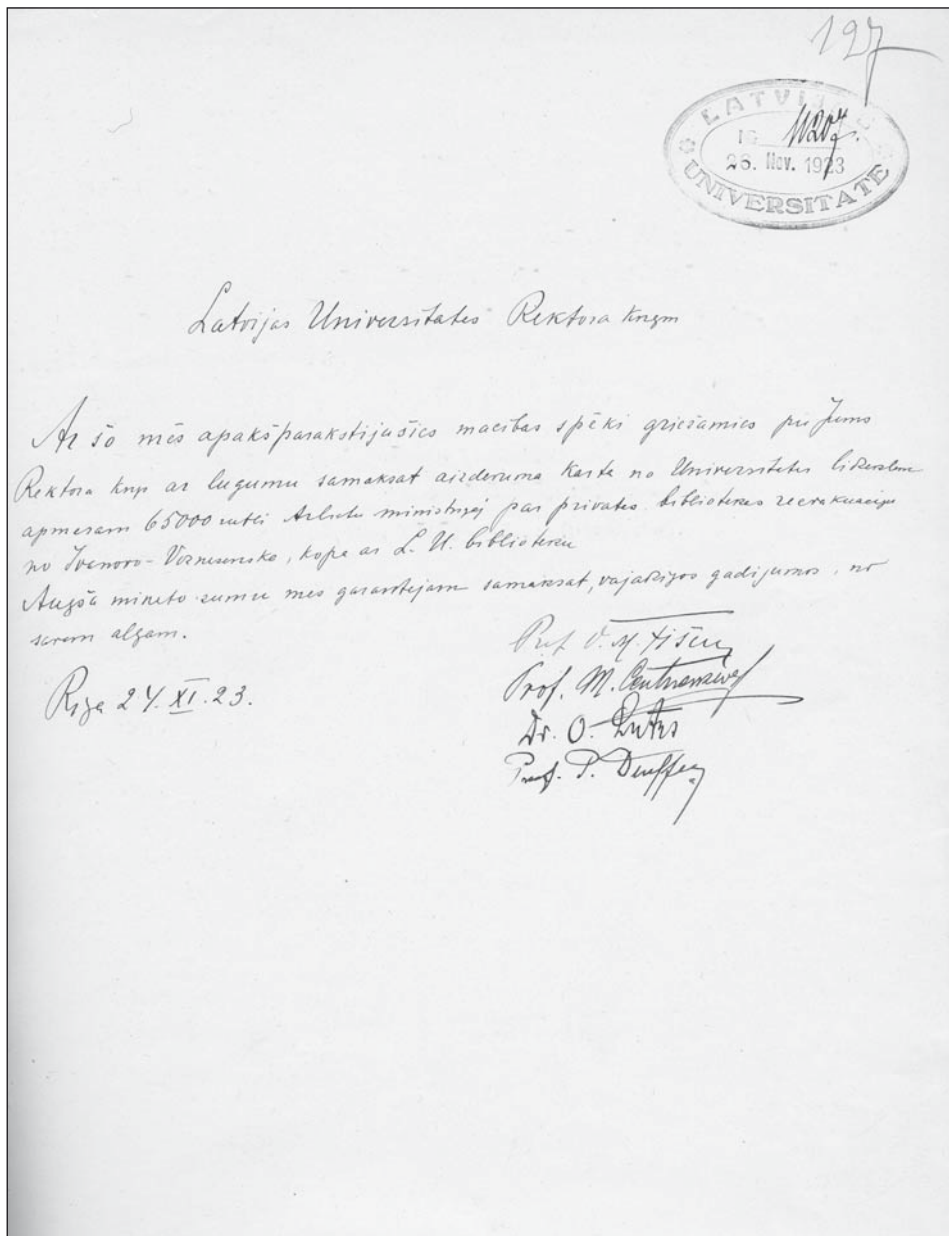 197
LATVIJAS
11207.
26. Nov. 1923
UNIVERSITATE
Latvijas Universitates Rektora kngm
Ar šo mēs apakšparakstijašies macibas spēki griežamies pie Jums
Rektora kngs ar lugumu samaksat aizdevuma karta no Universitates lidzekļiem
apmeram 65000 rubli Arlietu ministrijaj par privatas bibliotekas reevakuaciju
no Ivanovo-Voznesensko, kopa ar L. U. biblioteku
Augšā mineto sumu mes garantejam samaksat, vajadzigos gadijumos, no
savam algam.
Riga 24. XI. 23.
Prof.
Prof. M.
Dr. O. Lutzs
Prof. P. Denffer